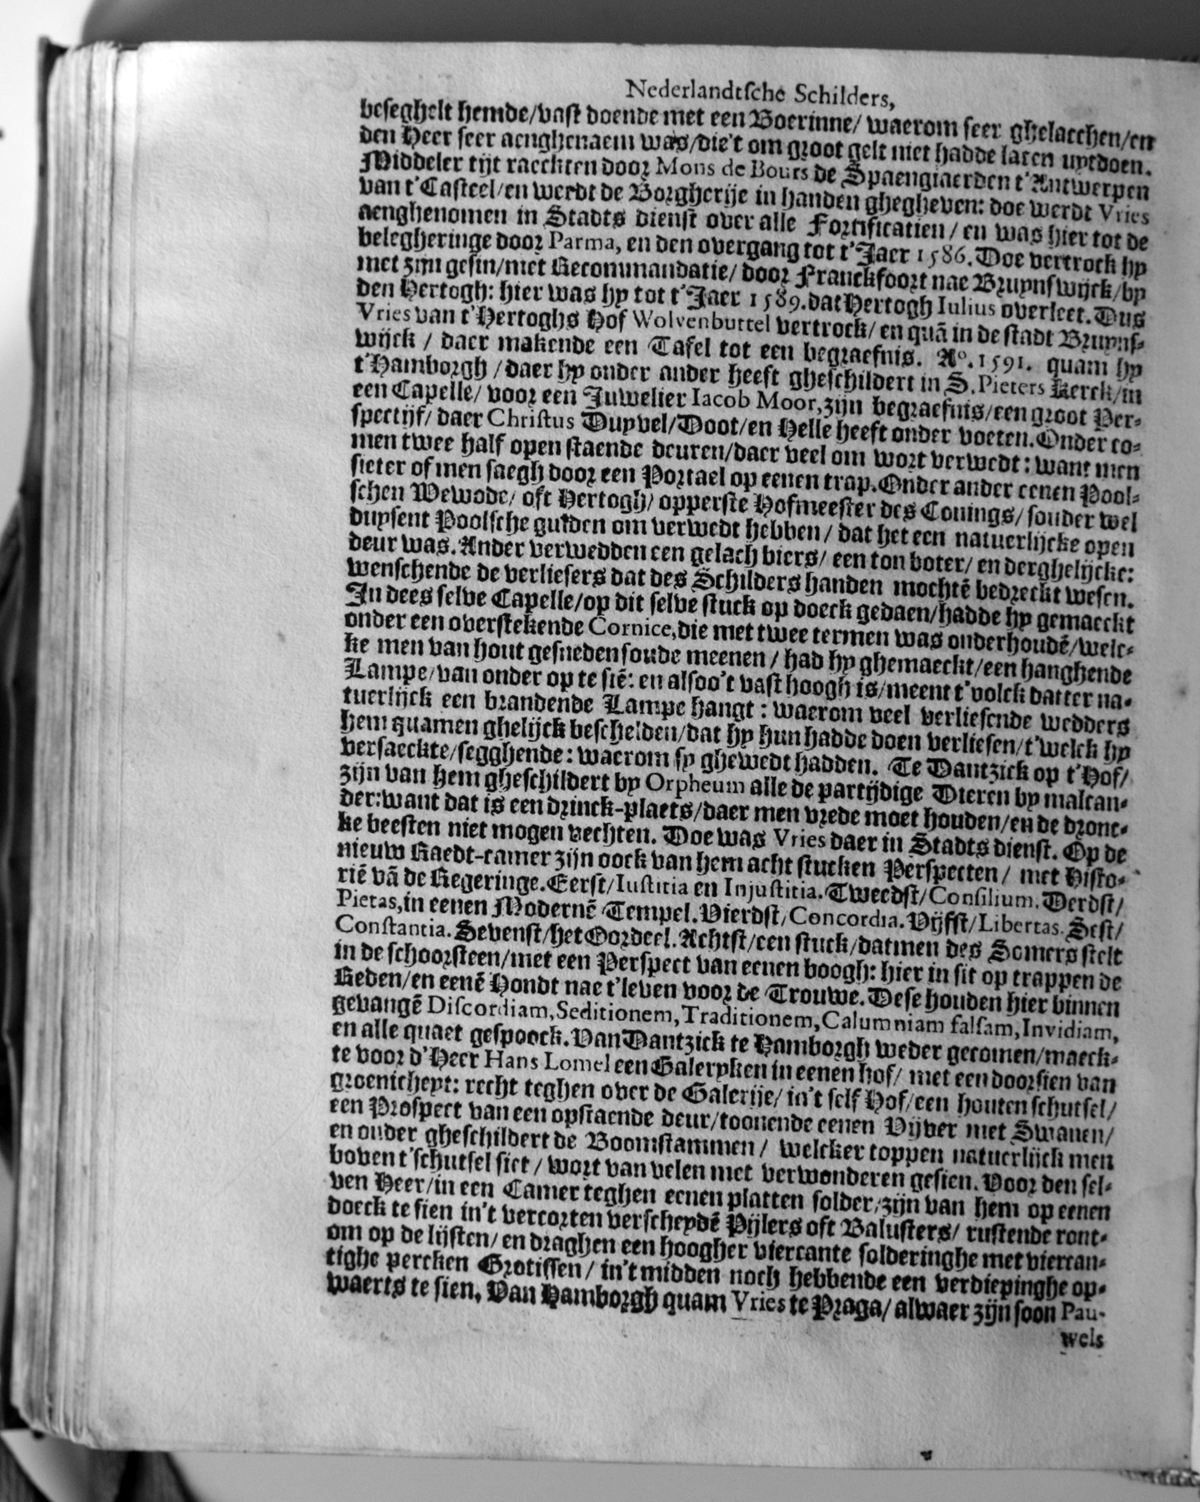 Nederlandtsche Schilders,
beseghelt hemde/vast doende met een Boerinne/ waerom seer ghelacchen/en
den Heer seer aenghenaem was/die't om groot gelt niet hadde laten uytdoen.
Middeler tijt raeckten door Mons de Bours de Spaengiaerden t'Antwerpen
van t'Casteel/en werdt de Borgherije in handen ghegheven: doe werdt Vries
aenghenomen in Stadts dienst over alle Fortificatien/ en was hier tot de
belegheringe door Parma, en den overgang tot t'Jaer 1586. Doe vertrock hy
met zijn gesin/met Recommandatie/ door Franckfoort nae Bruynswijck/by
den Hertogh: hier was hy tot t'Jaer 1589. dat Hertogh Iulius overleet. Dus
Vries van t'Hertoghs Hof Wolvenbuttel vertrock/ en quã in de stadt Bruyns-
wijck / daer makende een Tafel tot een begraefnis. A°. 1591. quam hy
t'Hamborgh / daer hy onder ander heeft gheschildert in S. Pieters kerck/in
een Capelle/ voor een Juwelier Iacob Moor, zijn begraefnis/een groot Per-
spectijf/ daer Christus Duyvel/Doot/en Helle heeft onder voeten. Onder co-
men twee half open staende deuren/daer veel om wort verwedt: want men
sieter of men saegh door een Portael op eenen trap. Onder ander eenen Pool-
schen Wewode/ oft Hertogh/ opperste Hofmeester des Conings/ souder wel
duysent Poolsche gulden om verwedt hebben/ dat het een natuerlijcke open
deur was. Ander verwedden een gelach biers/ een ton boter/ en derghelijcke:
wenschende de verliesers dat des Schilders handen mochtẽ bedreckt wesen.
In dees selve Capelle/op dit selve stuck op doeck gedaen/hadde hy gemaeckt
onder een overstekende Cornice, die met twee termen was onderhoudẽ/welc-
ke men van hout gesneden soude meenen / had hy ghemaeckt/een hanghende
Lampe/van onder op te siẽ: en alsoo't vast hoogh is/meent t'volck datter na-
tuerlijck een brandende Lampe hangt : waerom veel verliesende wedders
hem quamen ghelijck beschelden/dat hy hun hadde doen verliesen/t'welck hy
versaeckte/segghende: waerom sy ghewedt hadden. Te Dantzick op t'Hof/
zijn van hem gheschildert by Orpheum alle de partijdige Dieren by malcan-
der: want dat is een drinck-plaets/daer men vrede moet houden/en de dronc-
ke beesten niet mogen vechten. Doe was Vries daer in Stadts dienst. Op de
nieuw Raedt-camer zijn oock van hem acht stucken Perspecten/ met Histo-
riẽ vã de Regeringe. Eerst/Iustitia en Injustitia. Tweedst/Consilium. Derdst/
Pietas, in eenen Modernẽ Tempel. Vierdst/Concordia. Vijfst/Libertas. Sest/
Constantia. Sevenst/het Oordeel. Achtst/een stuck/datmen des Somers stelt
in de schoorsteen/met een Perspect van eenen boogh: hier in sit op trappen de
Reden/en eenẽ Hondt nae t'leven voor de Trouwe. Dese houden hier binnen
gevangẽ Discordiam, Seditionem, Traditionem, Calumniam falsam, Invidiam,
en alle quaet gespoock. Van Dantzick te Hamborgh weder gecomen/maeck-
te voor d'Heer Hans Lomel een Galeryken in eenen hof/ met een doorsien van
groenicheyt: recht teghen over de Galerije/ in't self Hof/een houten schutsel/
een Prospect van een opstaende deur/toonende eenen Vijver met Swanen/
en onder gheschildert de Boomstammen/ welcker toppen natuerlijck men
boven t'schutsel siet / wort van velen met verwonderen gesien. Voor den sel-
ven Heer/in een Camer teghen eenen platten solder/zijn van hem op eenen
doeck te sien in't vercorten verscheydẽ Pijlers oft Balusters/ rustende ront-
om op de lijsten/ en draghen een hoogher viercante solderinghe met viercan-
tighe percken Grotissen/ in't midden noch hebbende een verdiepinghe op-
waerts te sien. Van Hamborgh quam Vries te Praga/ alwaer zijn soon Pau-
wels